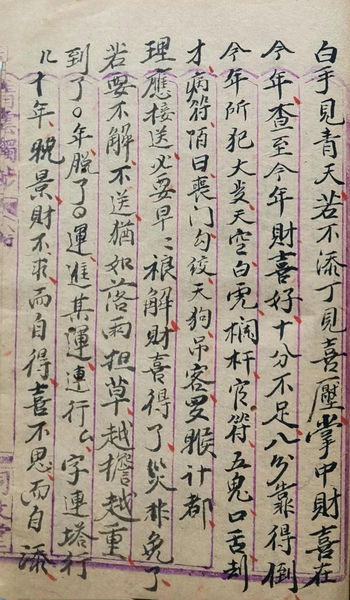 白手見青天若不添丁見喜壓掌中財喜在
今年查至今年財喜好十分不足八分靠得倒
今年所犯大炎天空白虎欄杆官符五鬼口舌刦
才病符陌日喪门勾絞天狗吊客要猴计都
理應接送必要早〻禳解財喜得了災非免了
若要不解不送猶如落雨担草越擔越重
到了〇年脫了〇運進某運連行么字連塔行
几十年晚景財不求而自得喜不思而自添